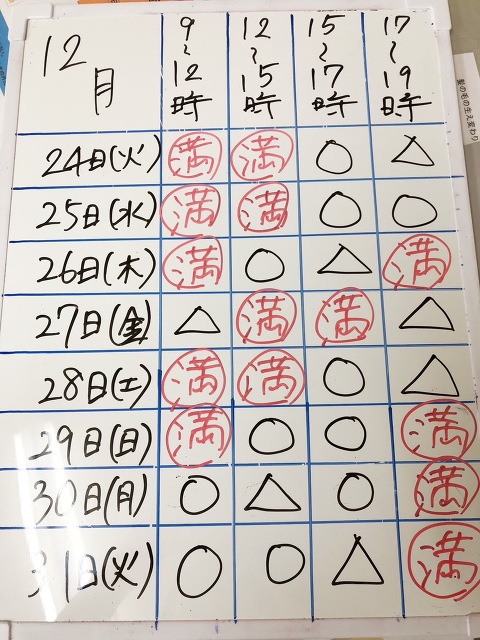 12月 9~12時 12~15時 15~17時 17~19時
24日(火) 満 満 ○ △
25日(水) 満 満 ○ ○
26日(木) 満 ○ △ 満
27日(金) △ 満 満 △
28日(土) 満 満 ○ △
29日(日) 満 ○ ○ 満
30日(月) ○ △ ○ 満
31日(火) ○ ○ △ 満
髪の毛の生え変わり